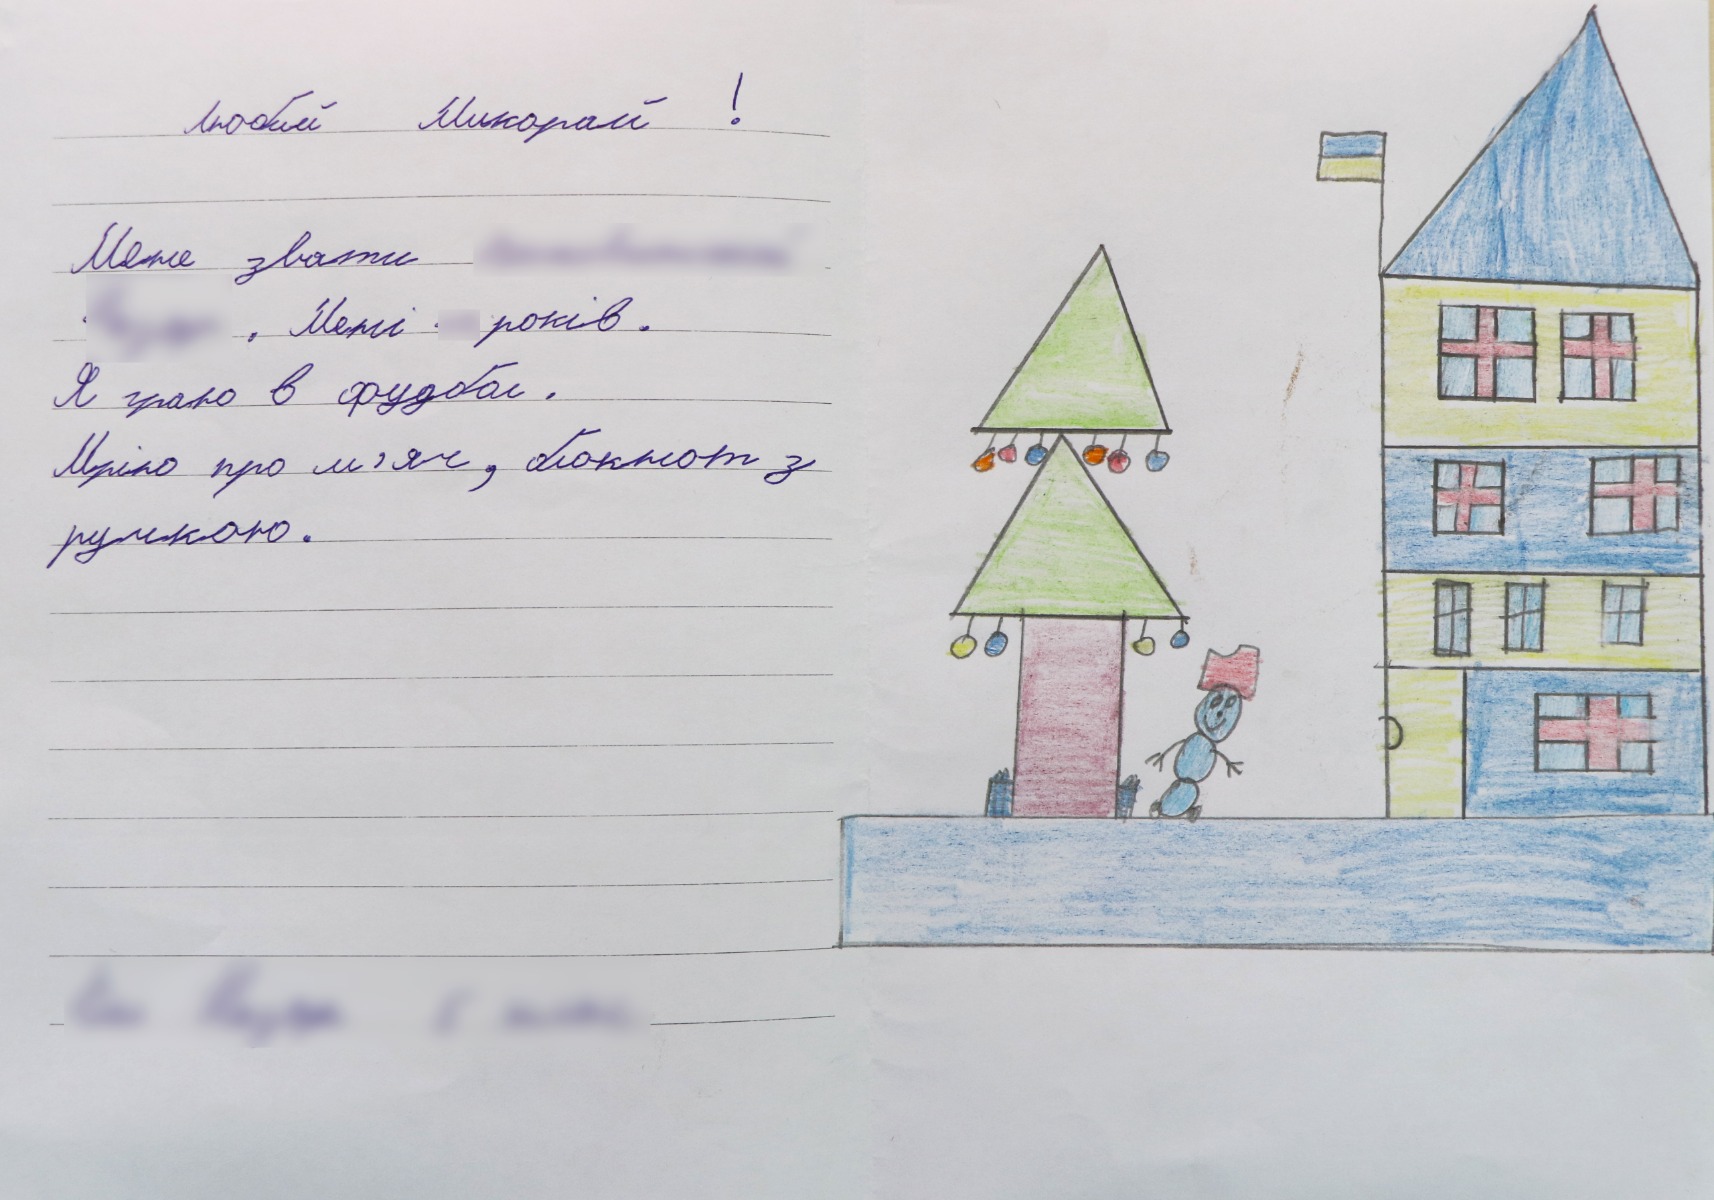 Любий Микорай !
Мене звати
. Мені років.
Я граю в фудбол.
Мрію про м'яч, блокнот з
ручкою.